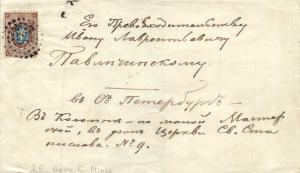 Его Превосходительству
Ивану Лаврентьевичу
Павлинскому
въ С. Петербургѣ
Въ Коломнѣ - по малой Мастер
ской, въ домѣ Церкви Св. Ста
нислава. № 9.